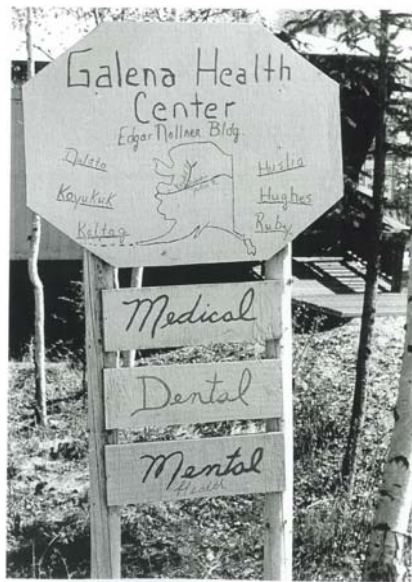 Galena Health
Center
Edgar Nollner Bldg.
Nulato
Koyukuk
Kaltag
Huslia
Hughes
Ruby
Medical
Dental
Mental
Health